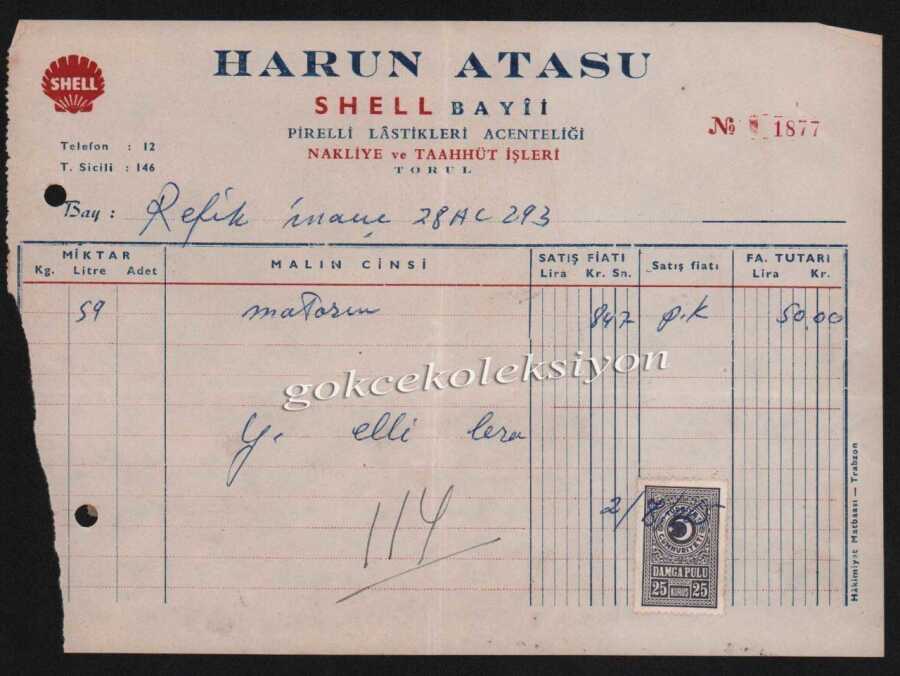 SHELL
HARUN ATASU
SHELL BAYÎİ
PİRELLİ LÂSTİKLERİ ACENTELİĞİ
NAKLİYE ve TAAHHÜT İŞLERİ
TORUL
Telefon : 12
T. Sicili : 146
№ 1877
Bay : Refik inanç 28 AC 293
MİKTAR
Kg. Litre Adet
MALIN CİNSİ
SATIŞ FİATI
Lira Kr. Sn.
Satış fiatı
FA. TUTARI
Lira Kr.
59 matorin 847 P.K 50.00
gokcekoleksiyon
Y. elli lera
114
TÜRKİYE
CUMHURİYETİ
DAMGA PULU
25 KURUŞ 25
Hâkimiyet Matbaası — Trabzon